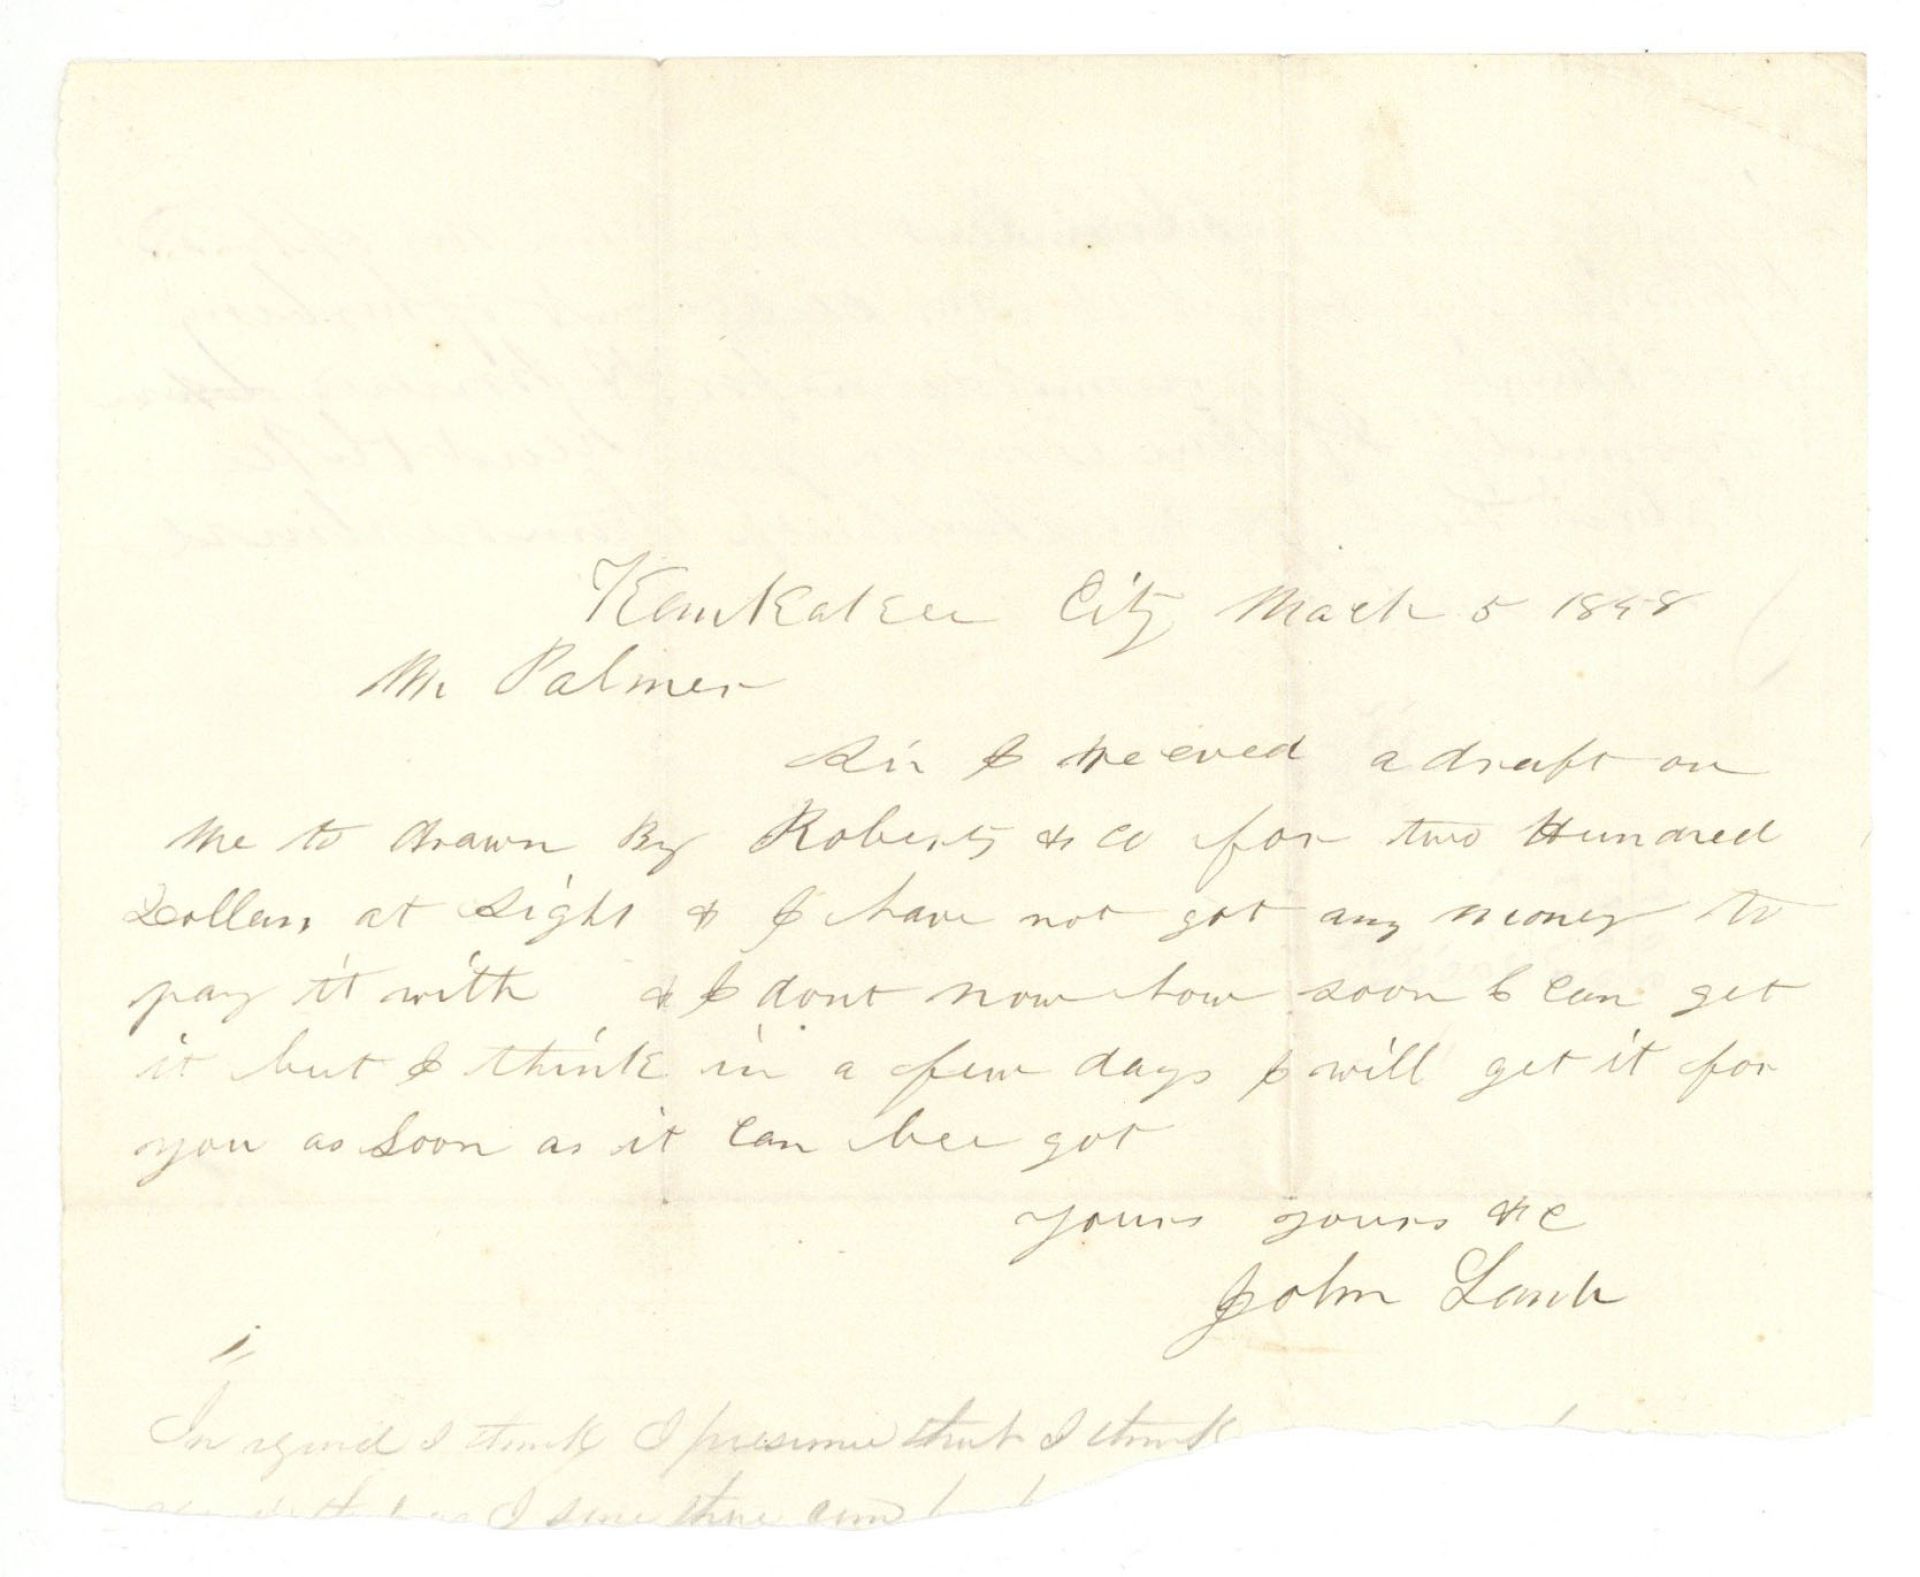 Kankakee City March 5 1858
Mr Palmer
Sir I receved a draft on
me to drawn By Roberts & co for two Hundred
Dollars at sight & I have not got any money to
pay it with & I dont now how soon I can get
it but I think in a few days I will get it for
you as soon as it can bee got
yours yours &c
John Lamb
In regard I think I presume that I think
I